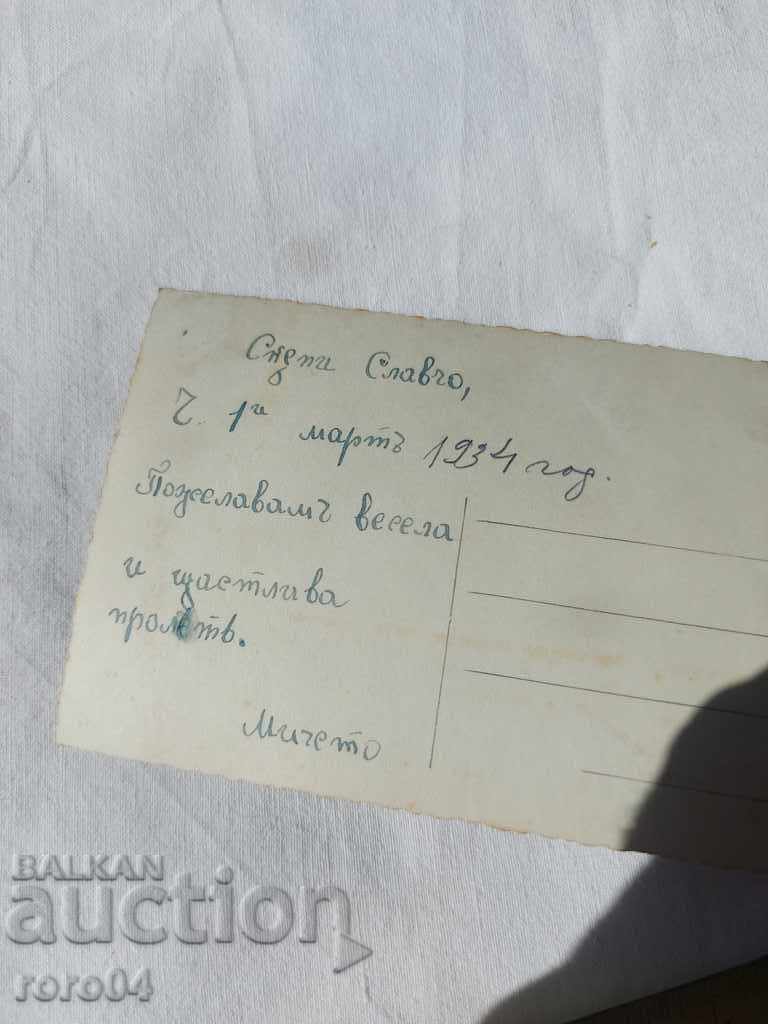 Славчо,
Ч. 1и мартъ 1934 год.
Пожелавамъ весела
и щастлива
пролѣтъ.
Мичето
BALKAN
auction
roro04